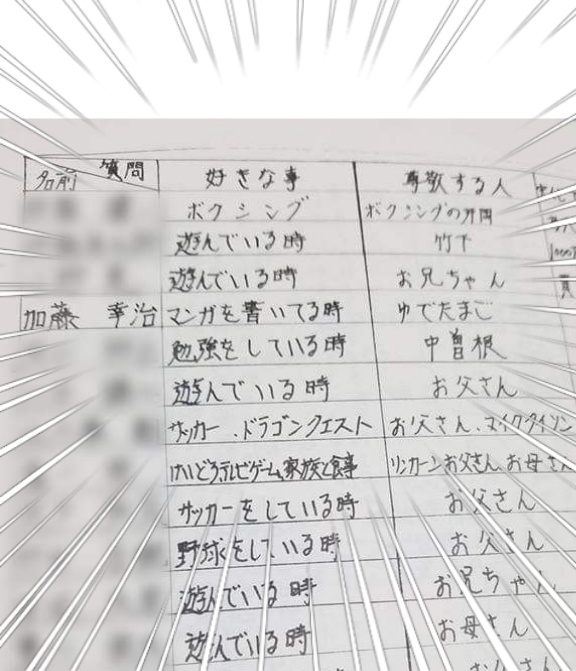 名前 質問 好きな事 尊敬する人
ボクシング ボクシングの
遊んでいる時 竹下
遊んでいる時 お兄ちゃん
加藤 幸治 マンガを書いてる時 ゆでたまご
勉強をしている時 中曽根
遊んでいる時 お父さん
サッカー、ドラゴンクエスト お父さん、マイクタイソン
けいどろテレビゲーム家族と食事 リンカーンお父さん、お母さん
サッカーをしている時 お父さん
野球をしている時 お父さん
遊んでいる時 お兄ちゃん
遊んでいる時 お母さん